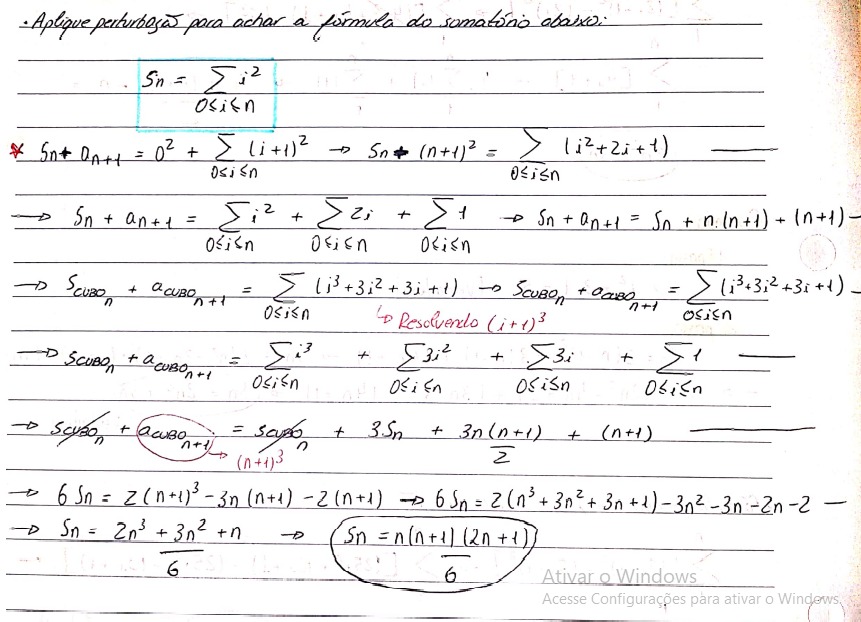 . Aplique perturbação para achar a fórmula do somatório abaixo:
Sn = ∑ i²
0≤i≤n
* Sn + an+1 = 0² + ∑ (i+1)² → Sn + (n+1)² = ∑ (i²+2i+1)
0≤i≤n 0≤i≤n
→ Sn + an+1 = ∑ i² + ∑ 2i + ∑ 1 → Sn + an+1 = Sn + n.(n+1) + (n+1)
0≤i≤n 0≤i≤n 0≤i≤n
→ SCUBOn + aCUBOn+1 = ∑ (i³+3i²+3i+1) → SCUBOn + aCUBOn+1 = ∑ (i³+3i²+3i+1)
0≤i≤n 0≤i≤n
↳ Resolvendo (i+1)³
→ SCUBOn + aCUBOn+1 = ∑ i³ + ∑ 3i² + ∑ 3i + ∑ 1
0≤i≤n 0≤i≤n 0≤i≤n 0≤i≤n
→ SCUBOn + aCUBOn+1 = SCUBOn + 3Sn + 3n(n+1) + (n+1)
→ (n+1)³ 2
→ 6Sn = 2(n+1)³ - 3n(n+1) - 2(n+1) → 6Sn = 2(n³+3n²+3n+1) - 3n² - 3n - 2n - 2
→ Sn = 2n³ + 3n² + n → Sn = n(n+1)(2n+1)
6 6
Ativar o Windows
Acesse Configurações para ativar o Windows.